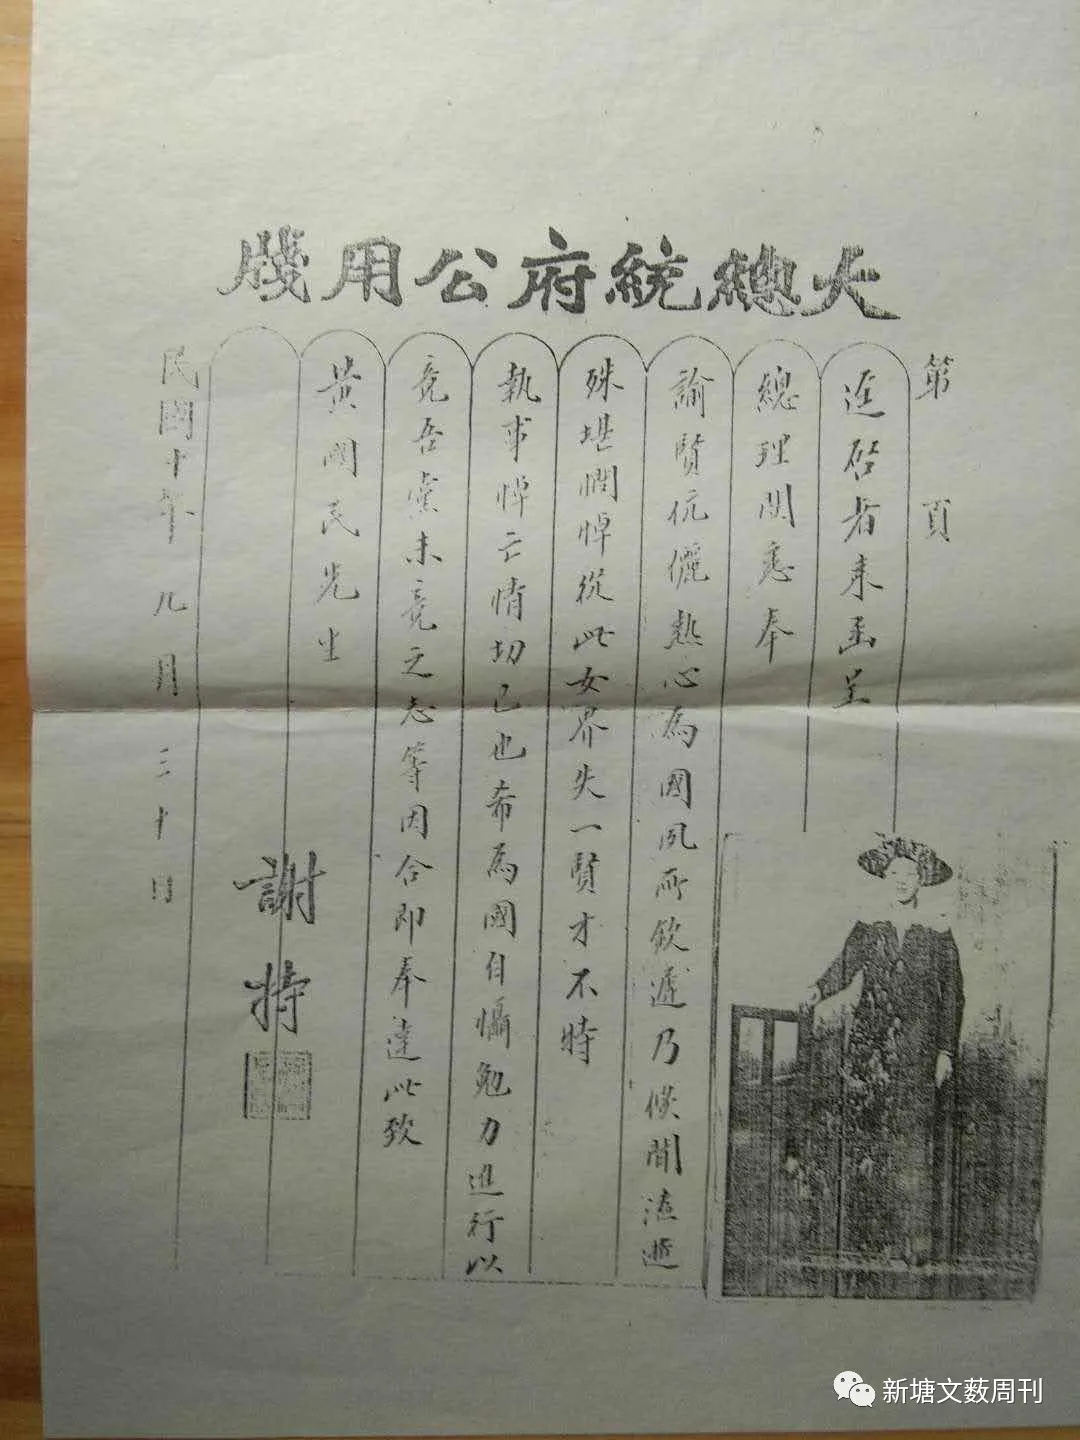 大總統府公用牋
第 頁
逕啓者来函呈
總理閱悉奉
諭賢伉儷熱心為國夙所欽遲乃倐聞溘逝
殊堪憫悼從此女界失一賢才不特
執事悼亡情切已也希為國自懾勉力進行以
竟吾黨未竟之志等因合即奉達此致
黃國民先生
謝持
民國十年九月三十日
新塘文薮周刊